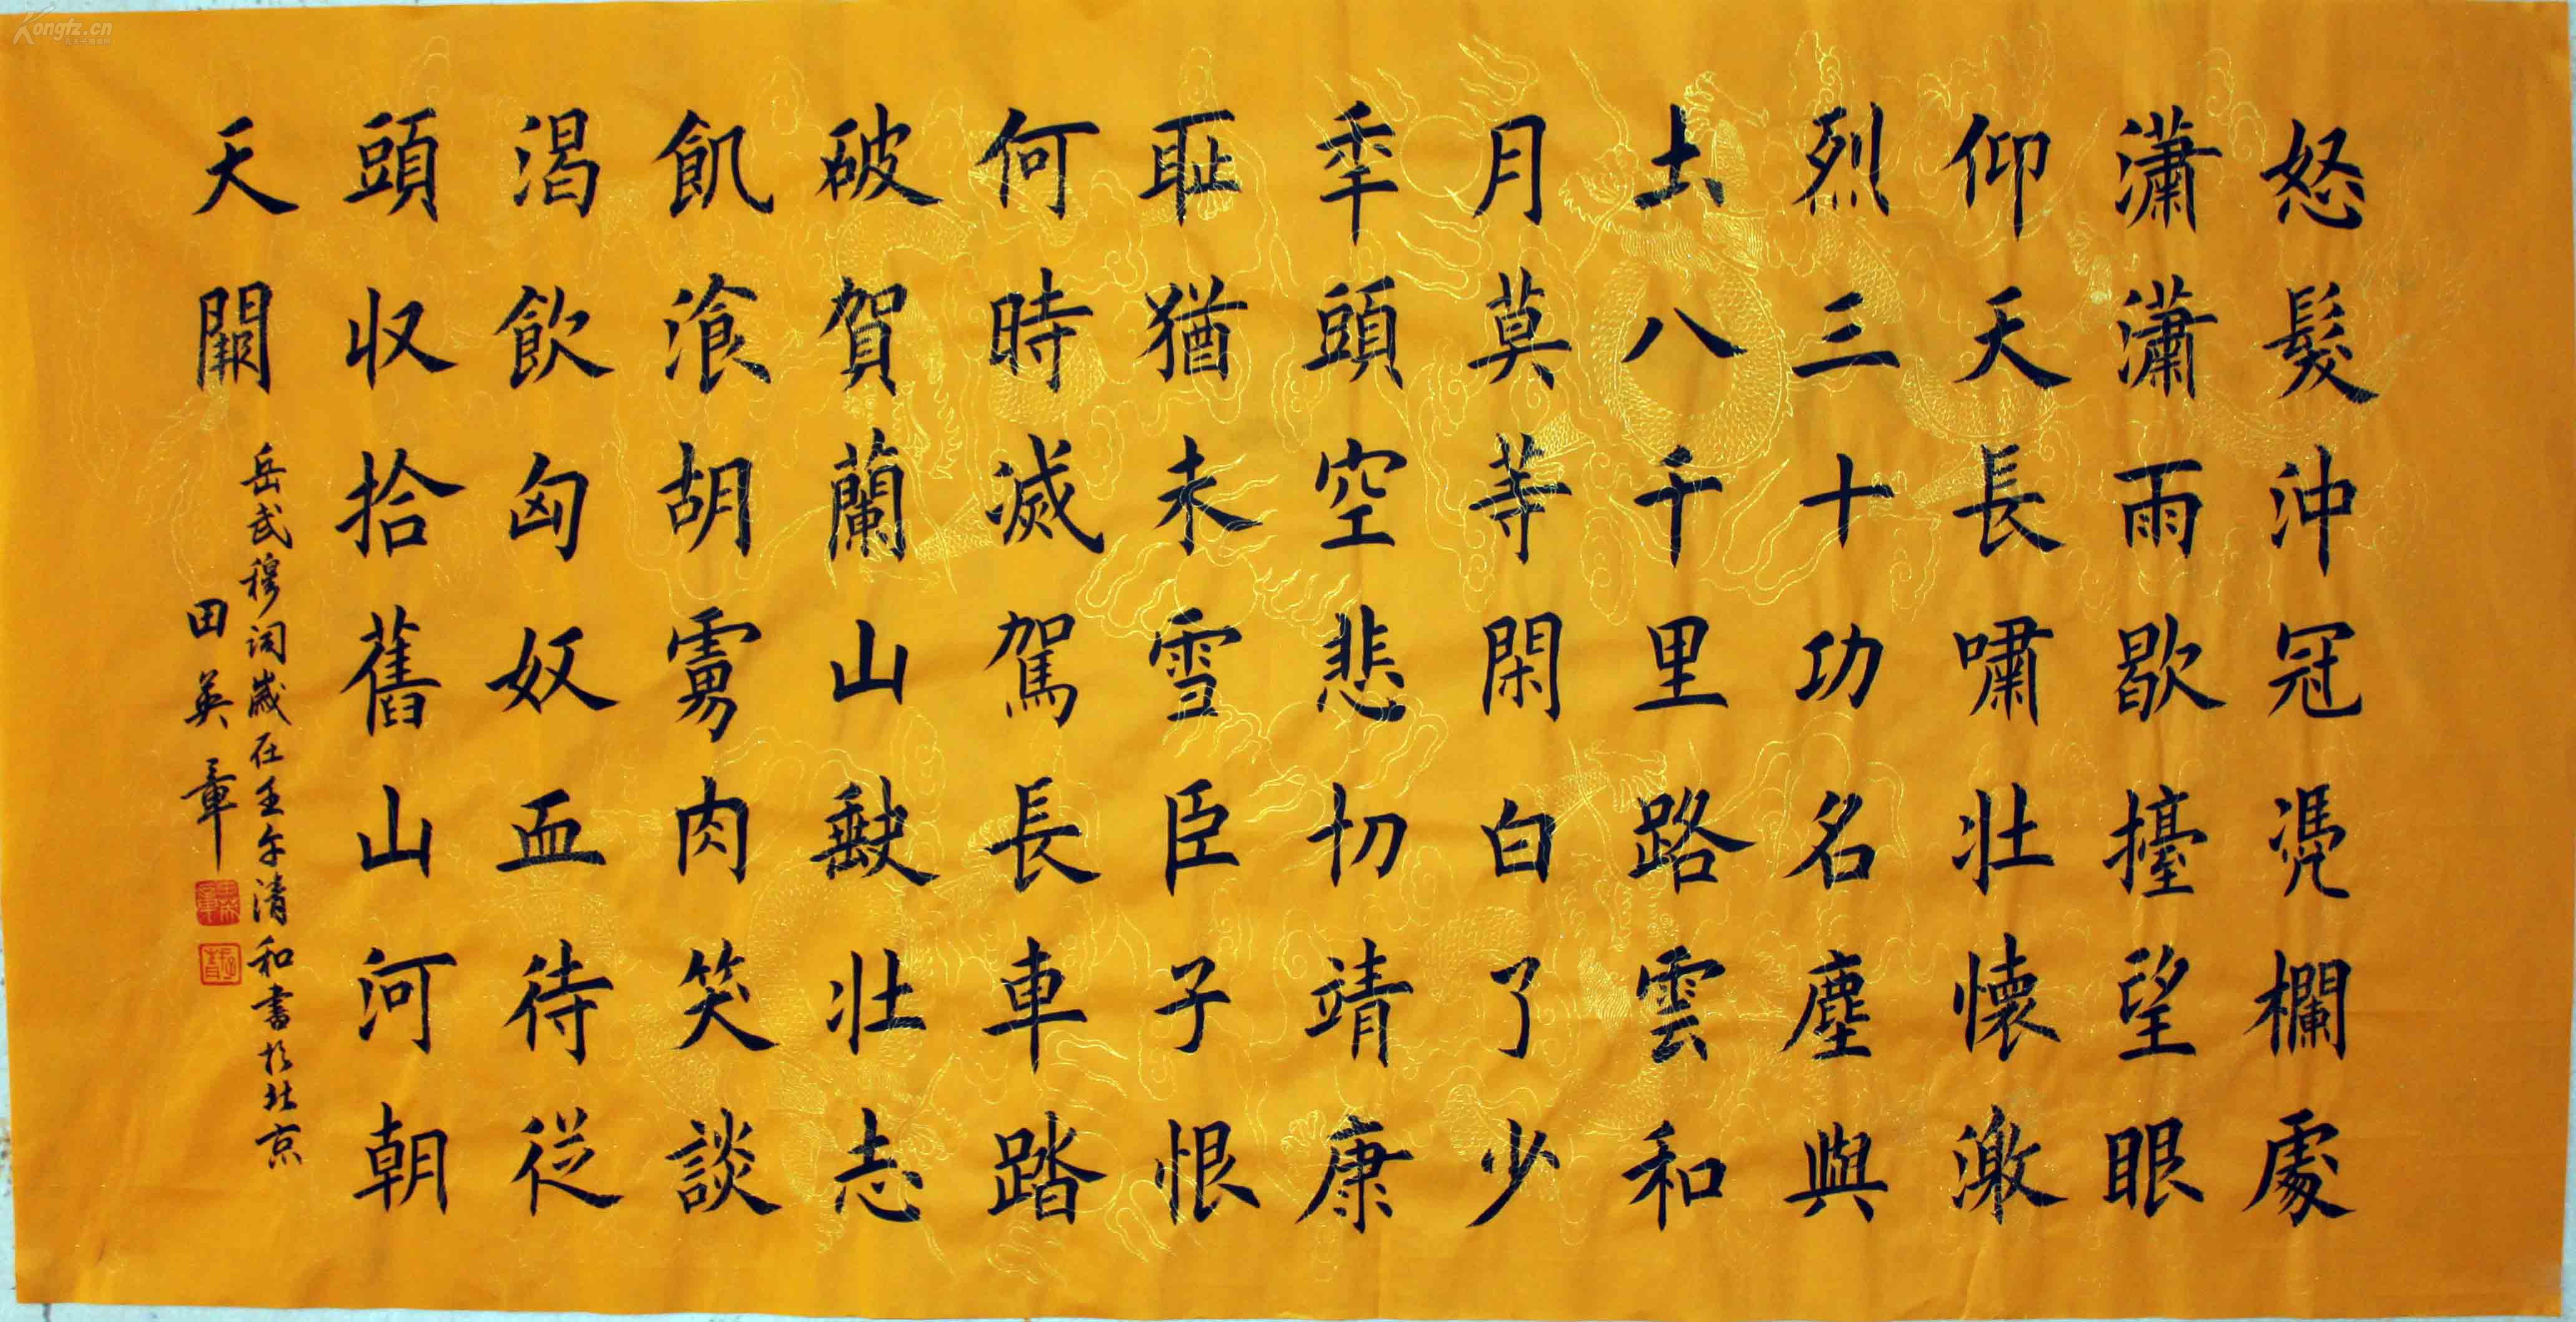 怒髮沖冠憑欄處
瀟瀟雨歇擡望眼
仰天長嘯壯懷激
烈三十功名塵與
土八千里路雲和
月莫等閑白了少
年頭空悲切靖康
恥猶未雪臣子恨
何時滅駕長車踏
破賀蘭山缺壯志
飢湌胡虜肉笑談
渴飲匈奴血待從
頭收拾舊山河朝
天闕
岳武穆詞歲在壬午清和書於北京
田英章
Kongfz.cn